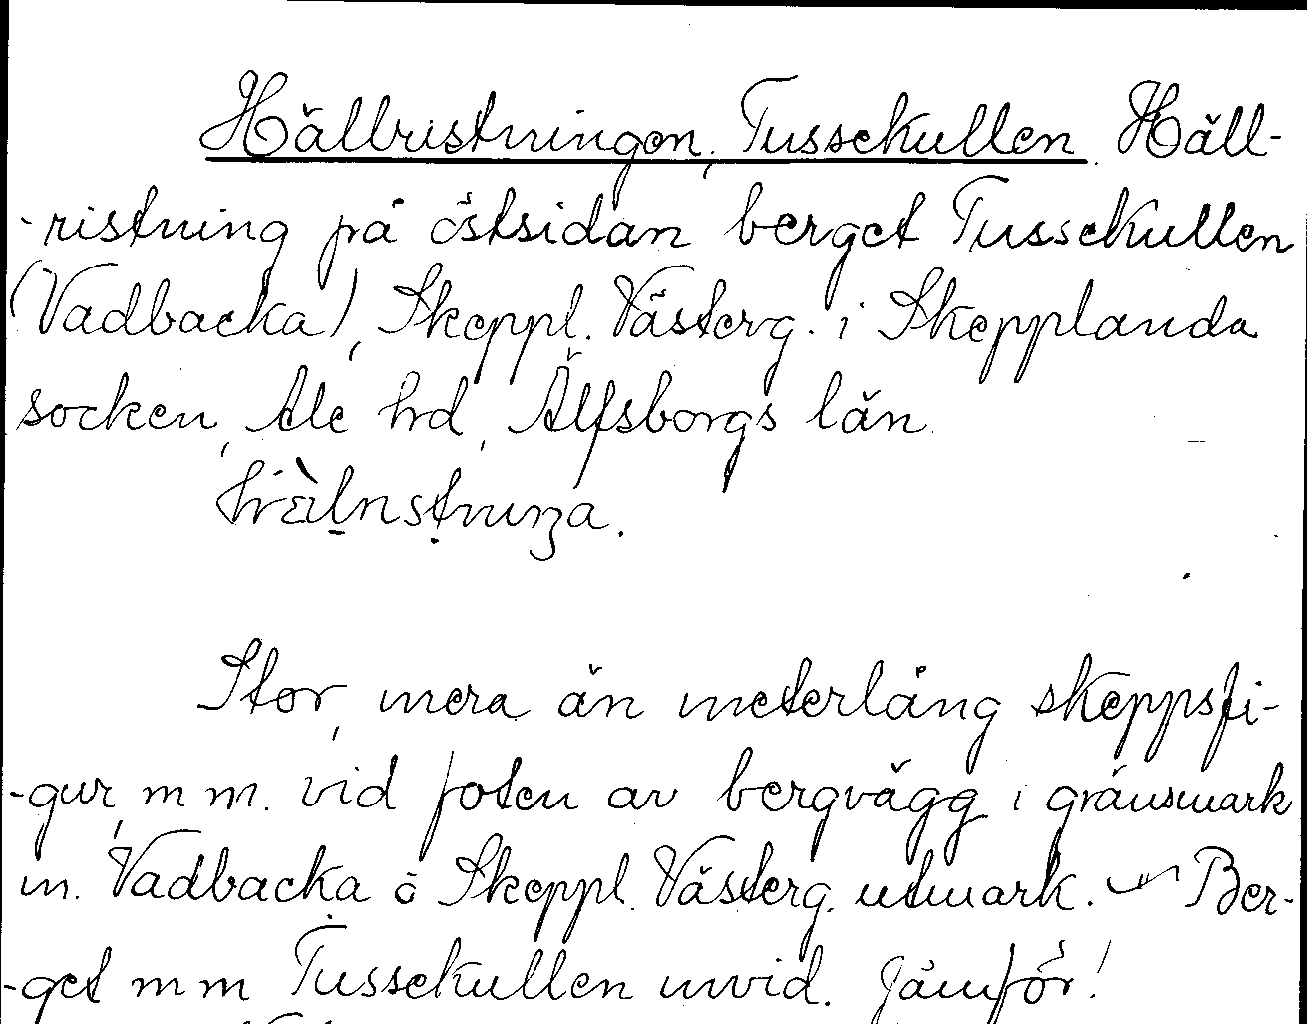 Hällristningen, Tussekullen. Häll-
-ristning på östsidan berget Tussekullen
(Vadbacka), Skeppl. Västerg. i Skepplanda
socken, Ale hrd, Älfsborgs län.
Stor, mera än meterlång skeppsfi-
-gur, m m. vid foten av bergvägg i gränsmark
m. Vadbacka ö Skeppl. Västerg. utmark. — Ber-
-get m m Tussekullen invid. Jämför!